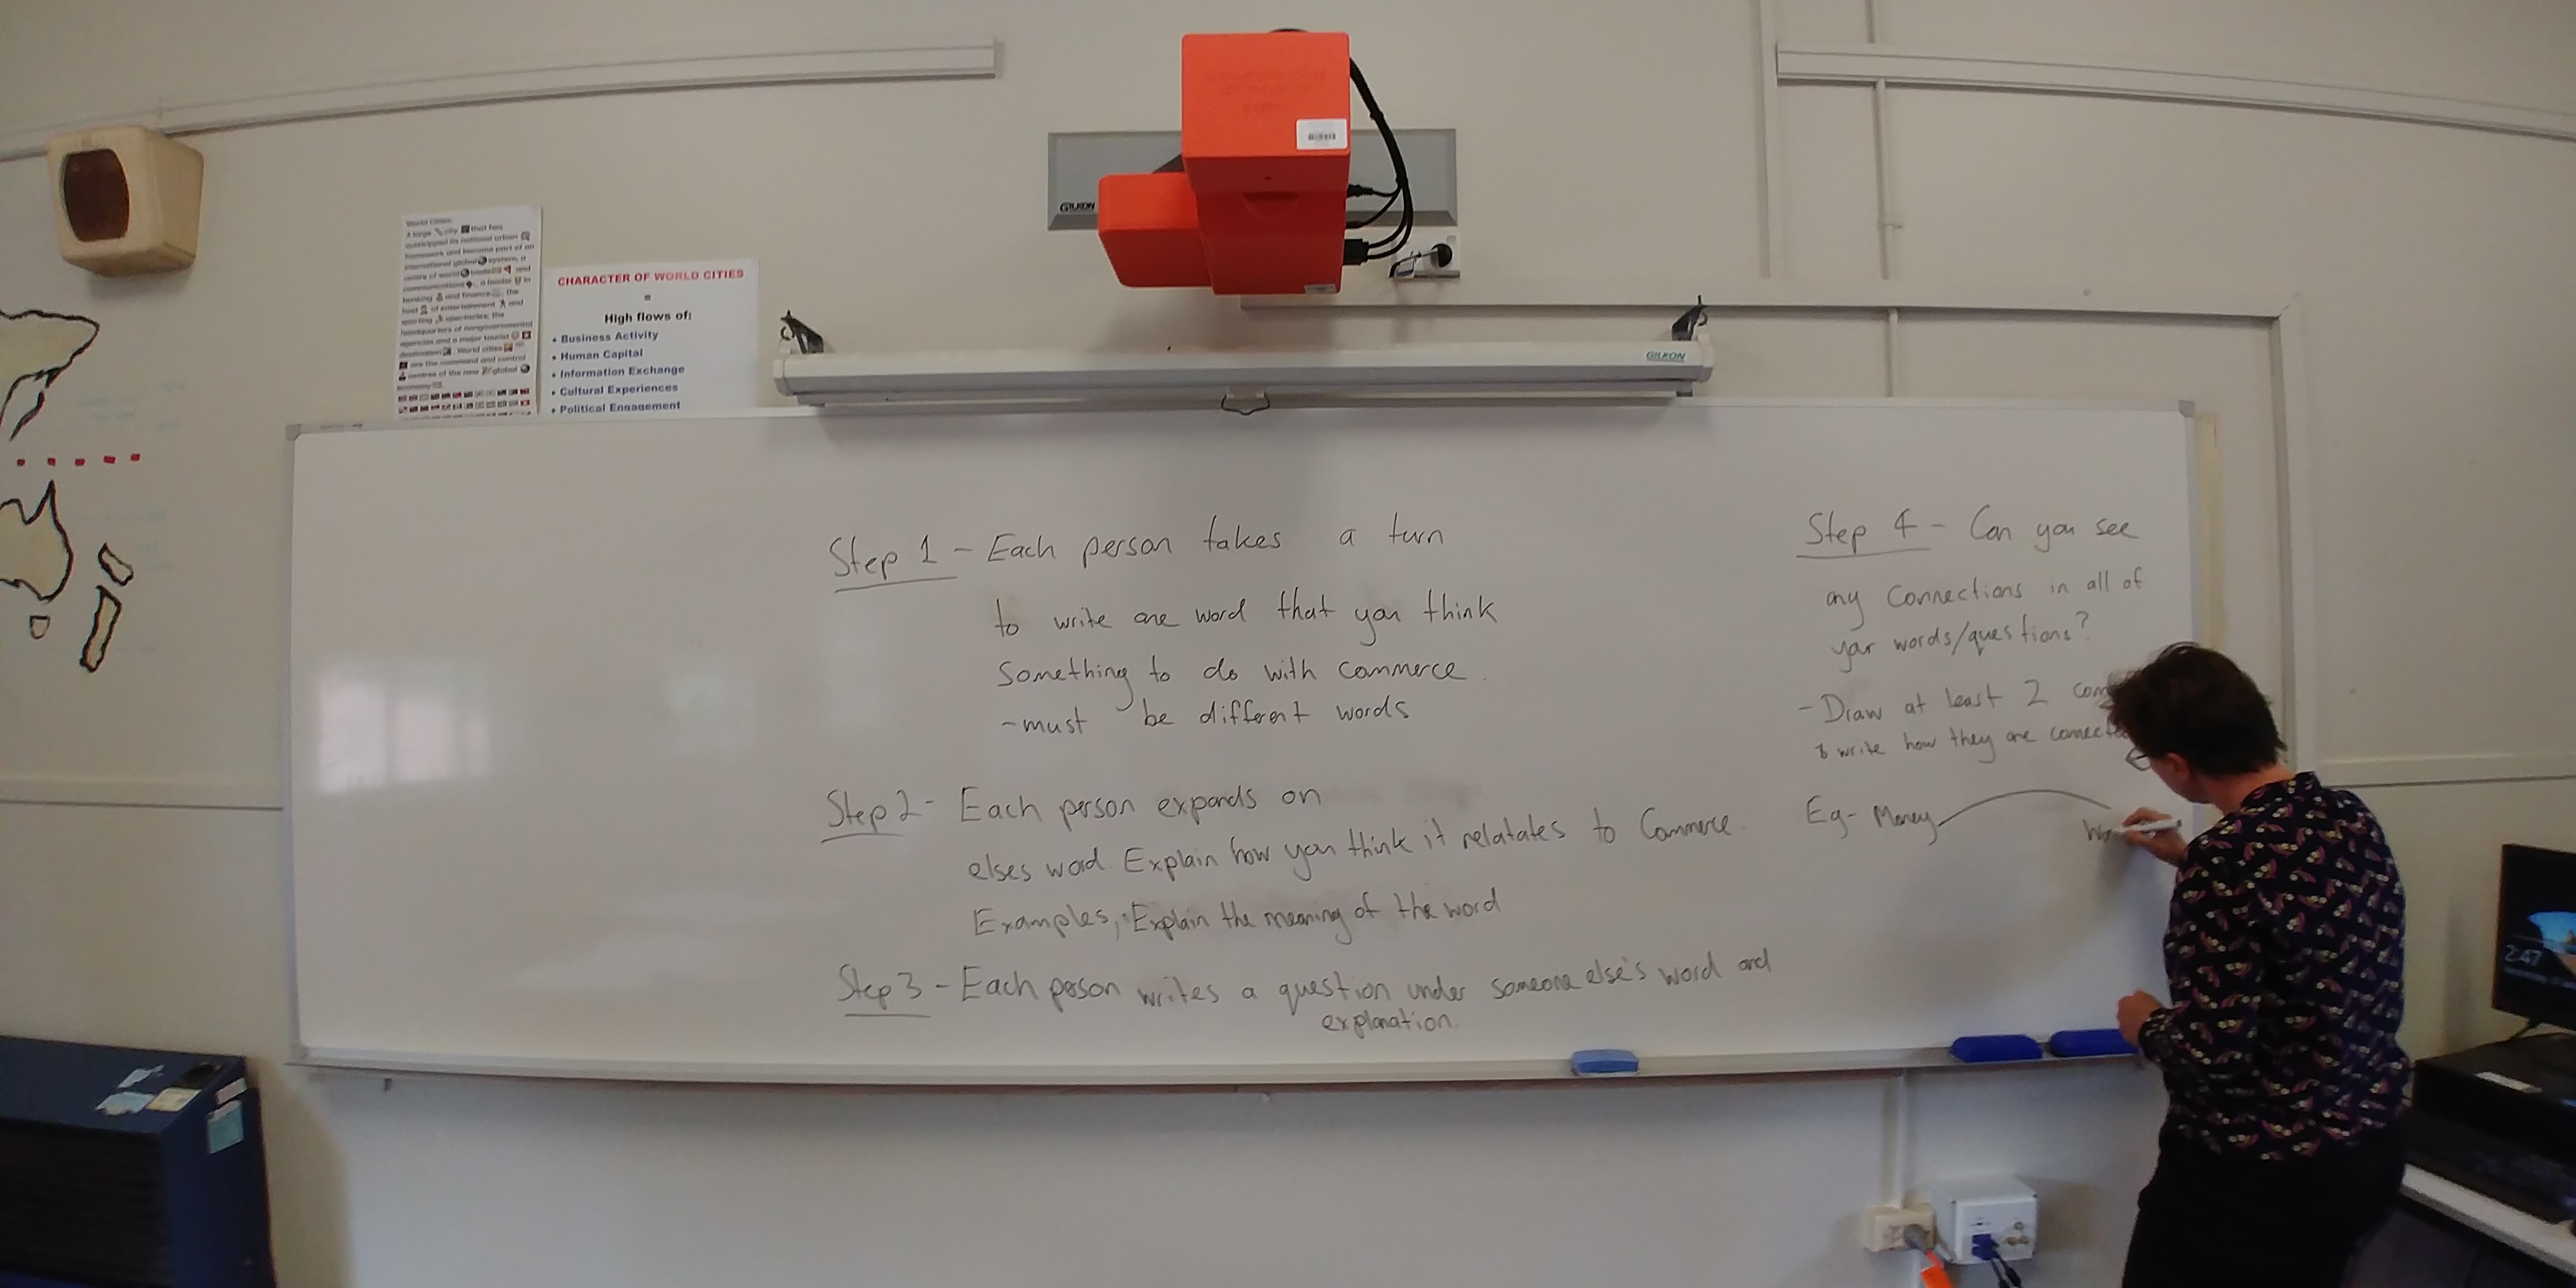 World Cities:
A large city that has
outstripped its national urban
framework and become part of an
international global system, a
centre of world trade and
communications, a leader in
banking and finance, the
host of entertainment and
sporting spectacles, the
headquarters of nongovernmental
agencies and a major tourist
destination. World cities
are the command and control
centres of the new global
economy
CHARACTER OF WORLD CITIES
=
High flows of:
• Business Activity
• Human Capital
• Information Exchange
• Cultural Experiences
• Political Engagement
GILKON
GILKON
Step 1 - Each person takes a turn
to write one word that you think
something to do with commerce.
- must be different words
Step 2 - Each person expands on
elses word. Explain how you think it relatates to Commerce.
Examples, Explain the meaning of the word
Step 3 - Each person writes a question under someone else's word and
explanation.
Step 4 - Can you see
any connections in all of
your words/questions?
- Draw at least 2
& write how they are connected
Eg - Money
2:47